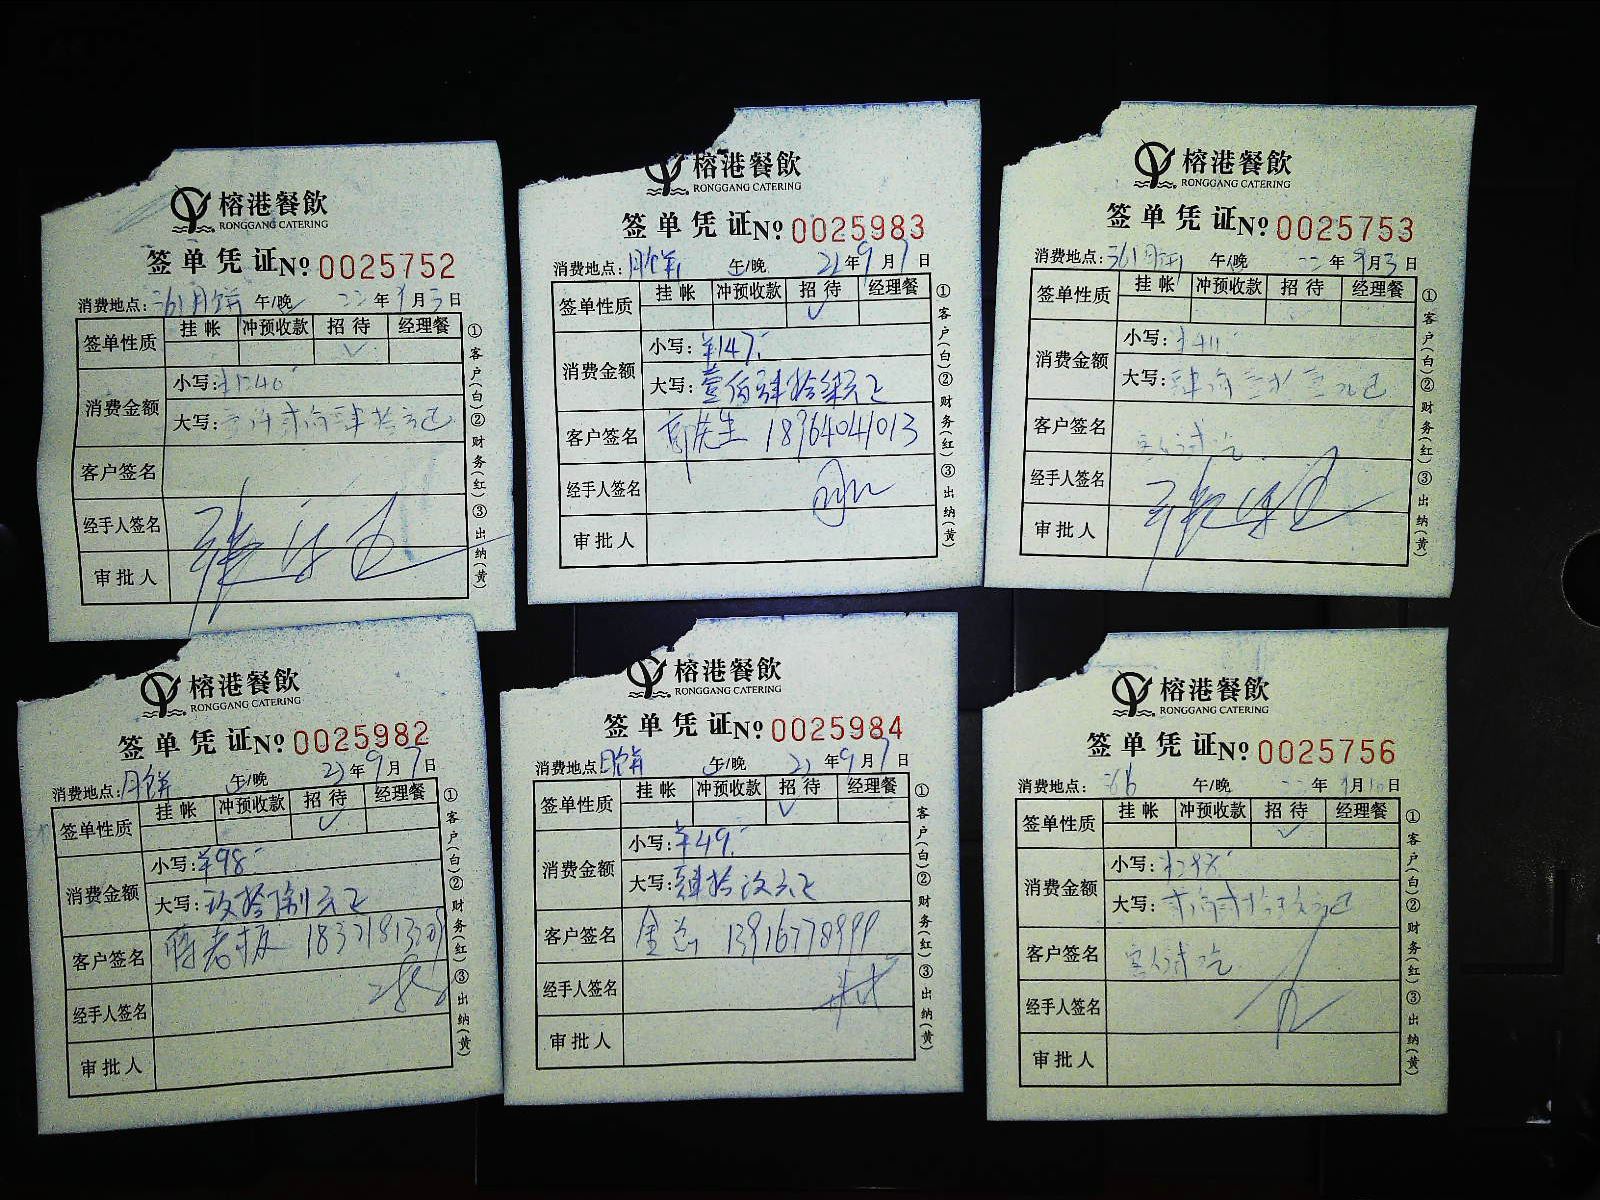 榕港餐飲
RONGGANG CATERING
签单凭证№ 0025752
消费地点: 月饼 午/晚 22年9月3日
签单性质 挂帐 冲预收款 招待 经理餐
✓
消费金额 小写:¥1240
大写:壹仟贰佰肆拾元正
客户签名
经手人签名
审批人
①客户(白)②财务(红)③出纳(黄)
榕港餐飲
RONGGANG CATERING
签单凭证№ 0025983
消费地点:月饼 午/晚 22年9月7日
签单性质 挂帐 冲预收款 招待 经理餐
✓
消费金额 小写:¥147.-
大写:壹佰肆拾柒元正
客户签名 先生 18964041013
经手人签名
审批人
①客户(白)②财务(红)③出纳(黄)
榕港餐飲
RONGGANG CATERING
签单凭证№ 0025753
消费地点: 月饼 午/晚 22年9月3日
签单性质 挂帐 冲预收款 招待 经理餐
消费金额 小写:
大写:肆佰
客户签名 客人试吃
经手人签名
审批人
①客户(白)②财务(红)③出纳(黄)
榕港餐飲
RONGGANG CATERING
签单凭证№ 0025982
消费地点:月饼 午/晚 22年9月7日
签单性质 挂帐 冲预收款 招待 经理餐
✓
消费金额 小写:¥98.-
大写:玖拾捌元正
客户签名 老板
经手人签名
审批人
①客户(白)②财务(红)③出纳(黄)
榕港餐飲
RONGGANG CATERING
签单凭证№ 0025984
消费地点:月饼 午/晚 22年9月7日
签单性质 挂帐 冲预收款 招待 经理餐
✓
消费金额 小写:¥49.-
大写:肆拾玖元正
客户签名 金总 13916778999
经手人签名
审批人
①客户(白)②财务(红)③出纳(黄)
榕港餐飲
RONGGANG CATERING
签单凭证№ 0025756
消费地点: 午/晚 22年9月10日
签单性质 挂帐 冲预收款 招待 经理餐
✓
消费金额 小写:
大写:贰佰贰拾玖元正
客户签名 客人试吃
经手人签名
审批人
①客户(白)②财务(红)③出纳(黄)